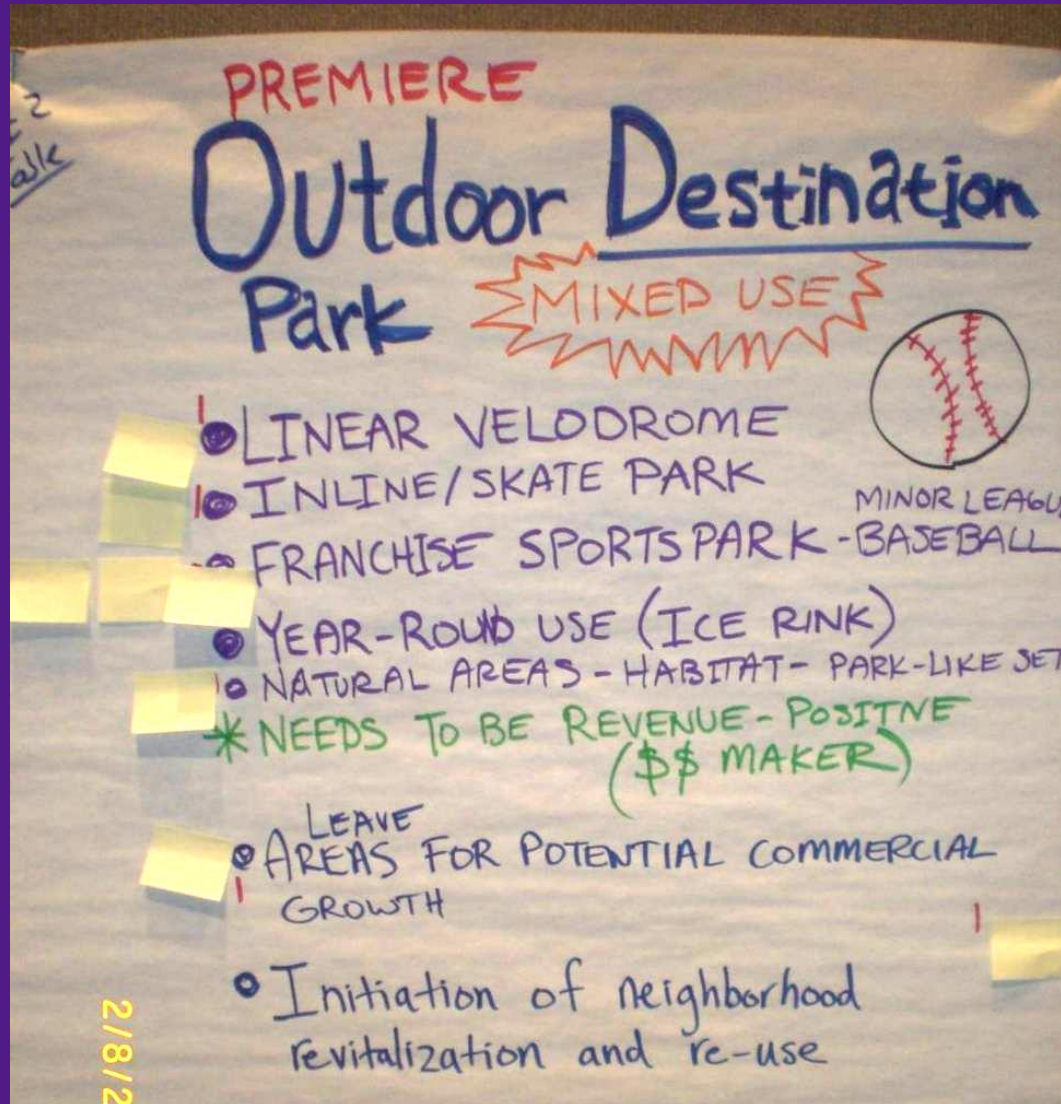 2
PREMIERE
Outdoor Destination
Park MIXED USE
LINEAR VELODROME
INLINE/SKATE PARK
MINOR LEAGU
FRANCHISE SPORTS PARK - BASEBALL
YEAR-ROUND USE (ICE RINK)
NATURAL AREAS - HABITAT - PARK-LIKE SET
* NEEDS TO BE REVENUE-POSITIVE
($$ MAKER)
LEAVE
AREAS FOR POTENTIAL COMMERCIAL
GROWTH
Initiation of neighborhood
revitalization and re-use
2/8/2